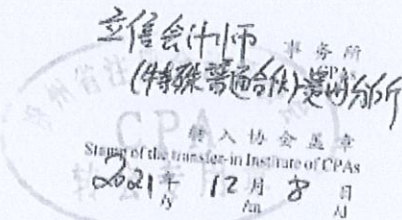 立信会计师 事务所
CPAs
(特殊普通合伙)贵州分所
CPA
转入协会盖章
Stamp of the transfer-in Institute of CPAs
2021年 12月 8日
/y /m /d